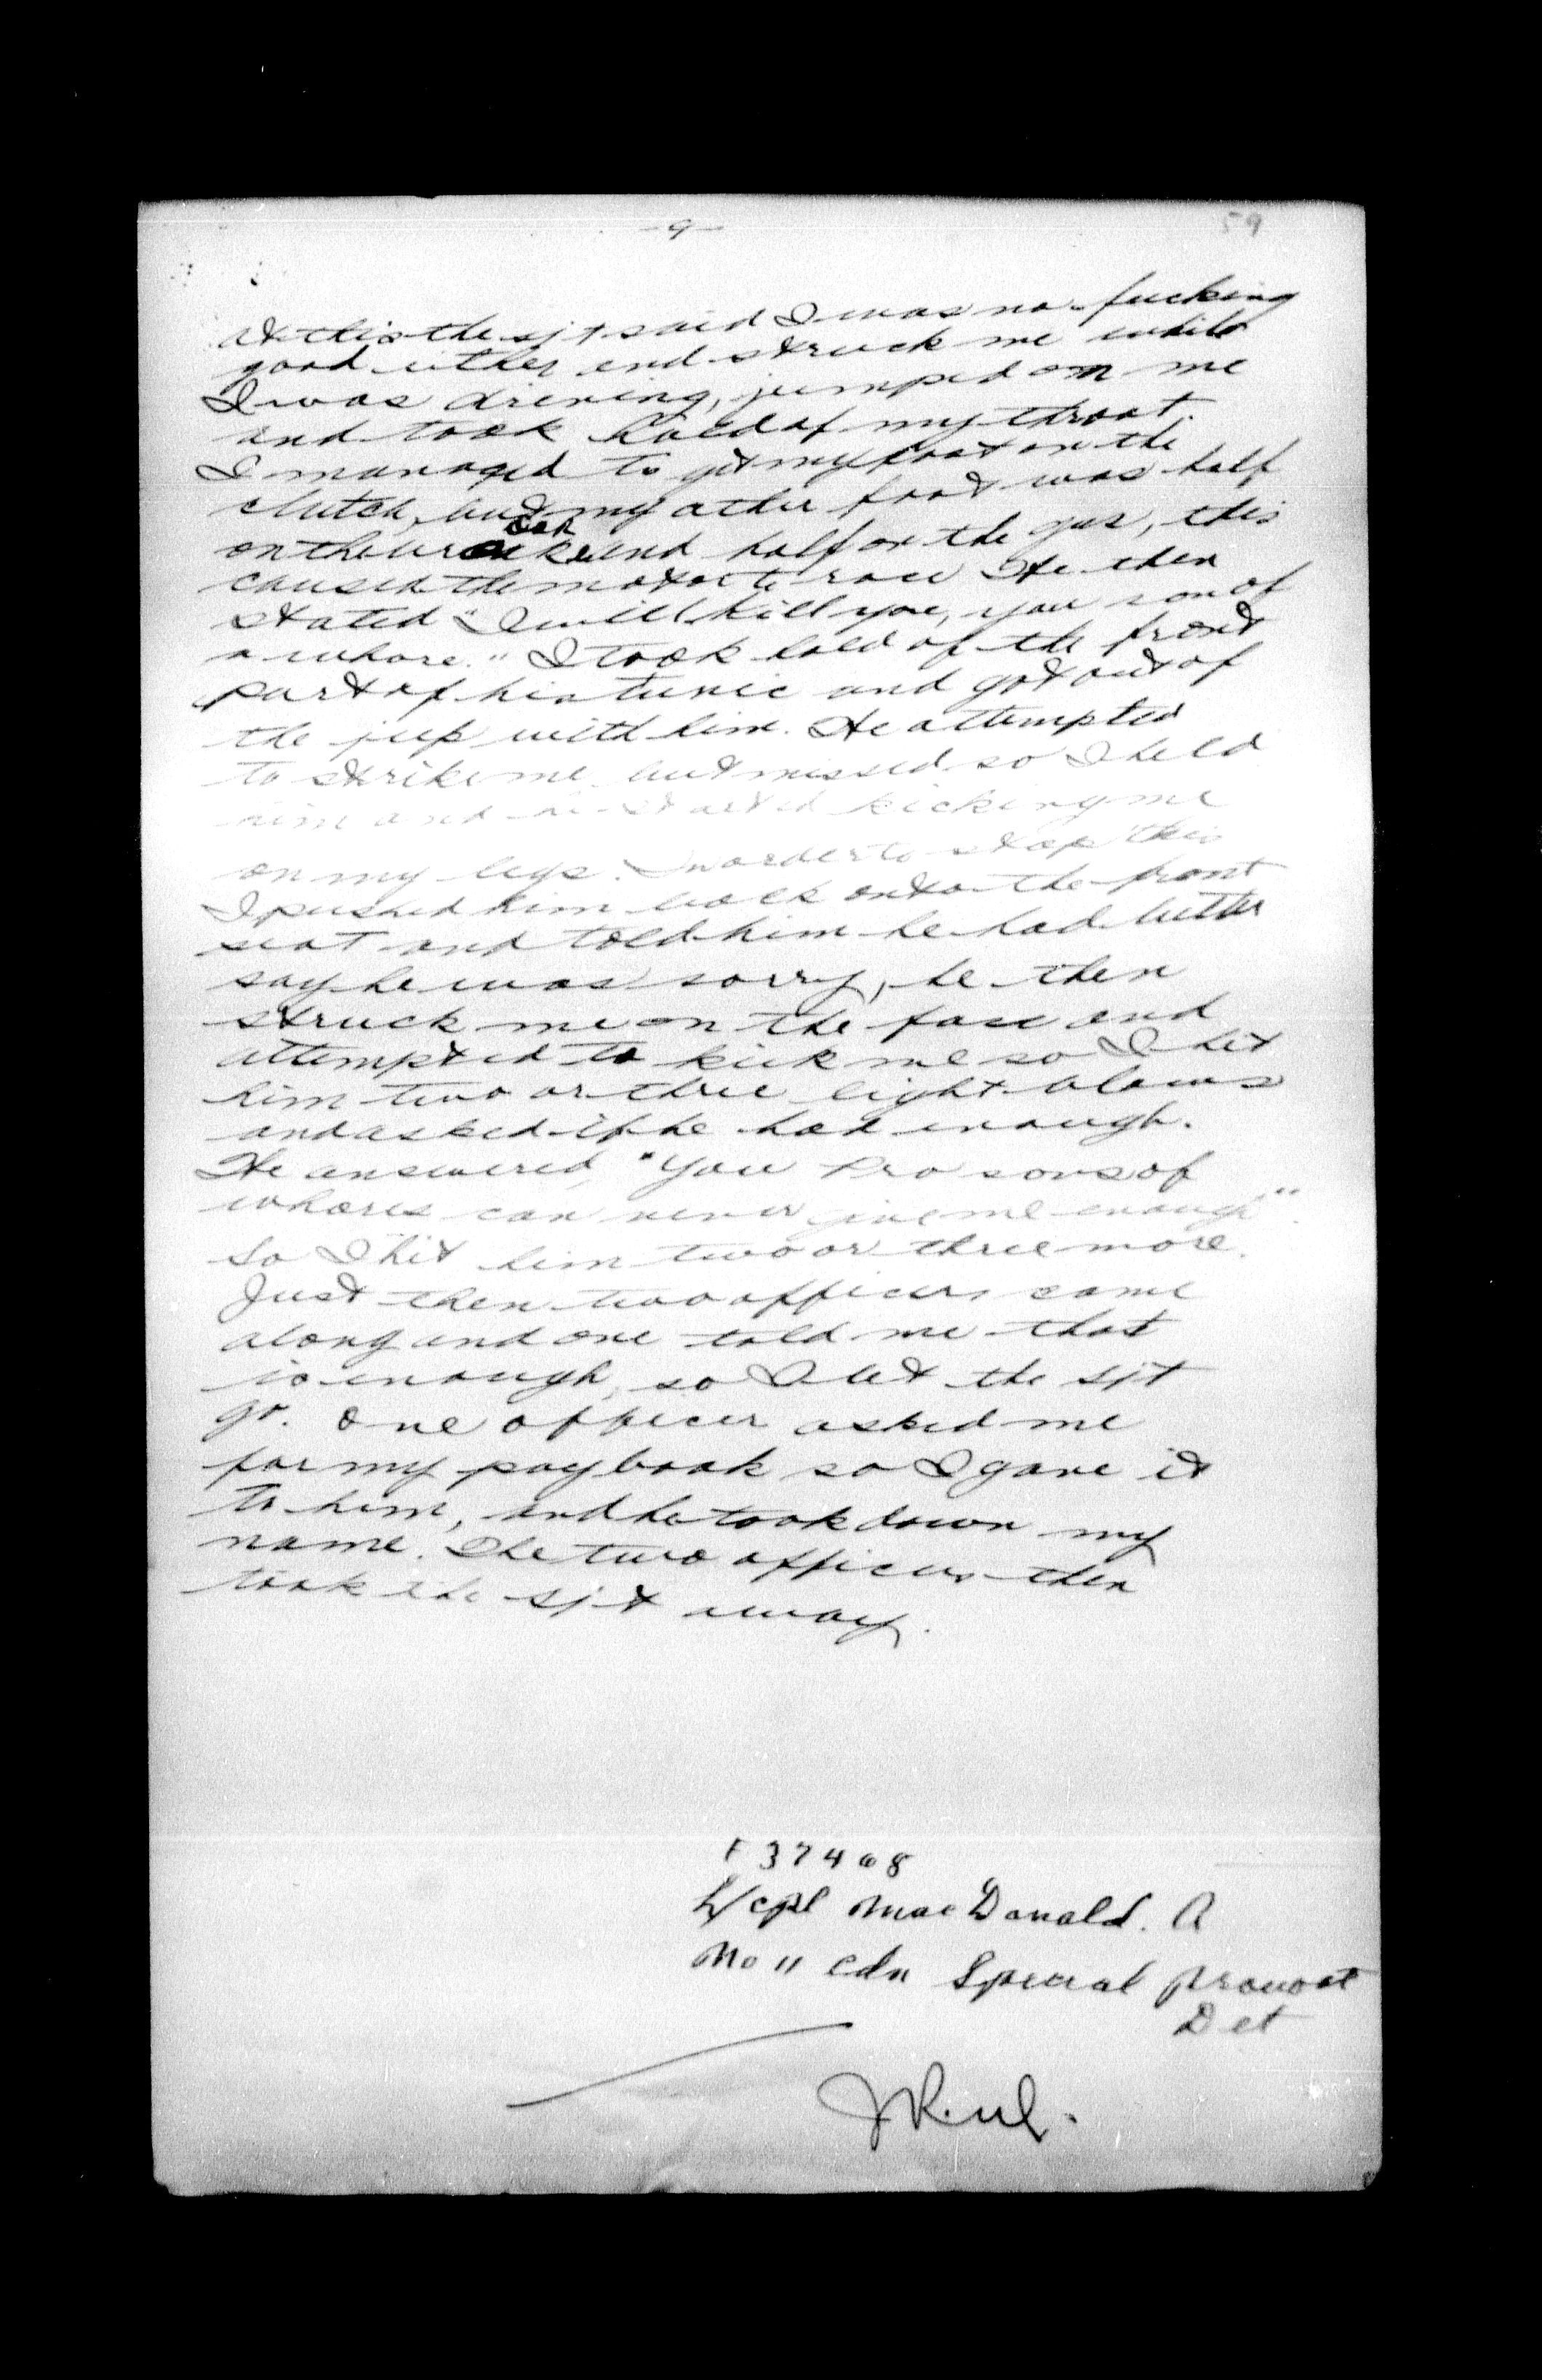 -9-
59
At this the sjt said I was no fucking
good either and struck me while
I was driving, jumped on me
and took hold of my throat.
I managed to get my foot on the
clutch, but my other foot was half
on the brake and half on the gas, this
caused the motor to race He then
stated "I will kill you, you son of
a whore." I took hold of the front
part of his tunic and got out of
the jeep with him. He attempted
to strike me but missed so I held
him and he started kicking me
on my legs. In order to stop this
I pushed him back onto the front
seat and told him he had better
say he was sorry, he then
struck me on the face and
attempted to kick me so I hit
him two or three light blows
and asked if he had enough.
He answered "You Pro sons of
whores can never give me enough".
So I hit him two or three more.
Just then two officers came
along and one told me that
is enough, so I let the sjt
go. One officer asked me
for my paybook so I gave it
to him, and he took down my
name. The two officers then
took the sjt away.
F 37468
L/cpl MacDonald. A
No 11 Cdn Special Provost
Det